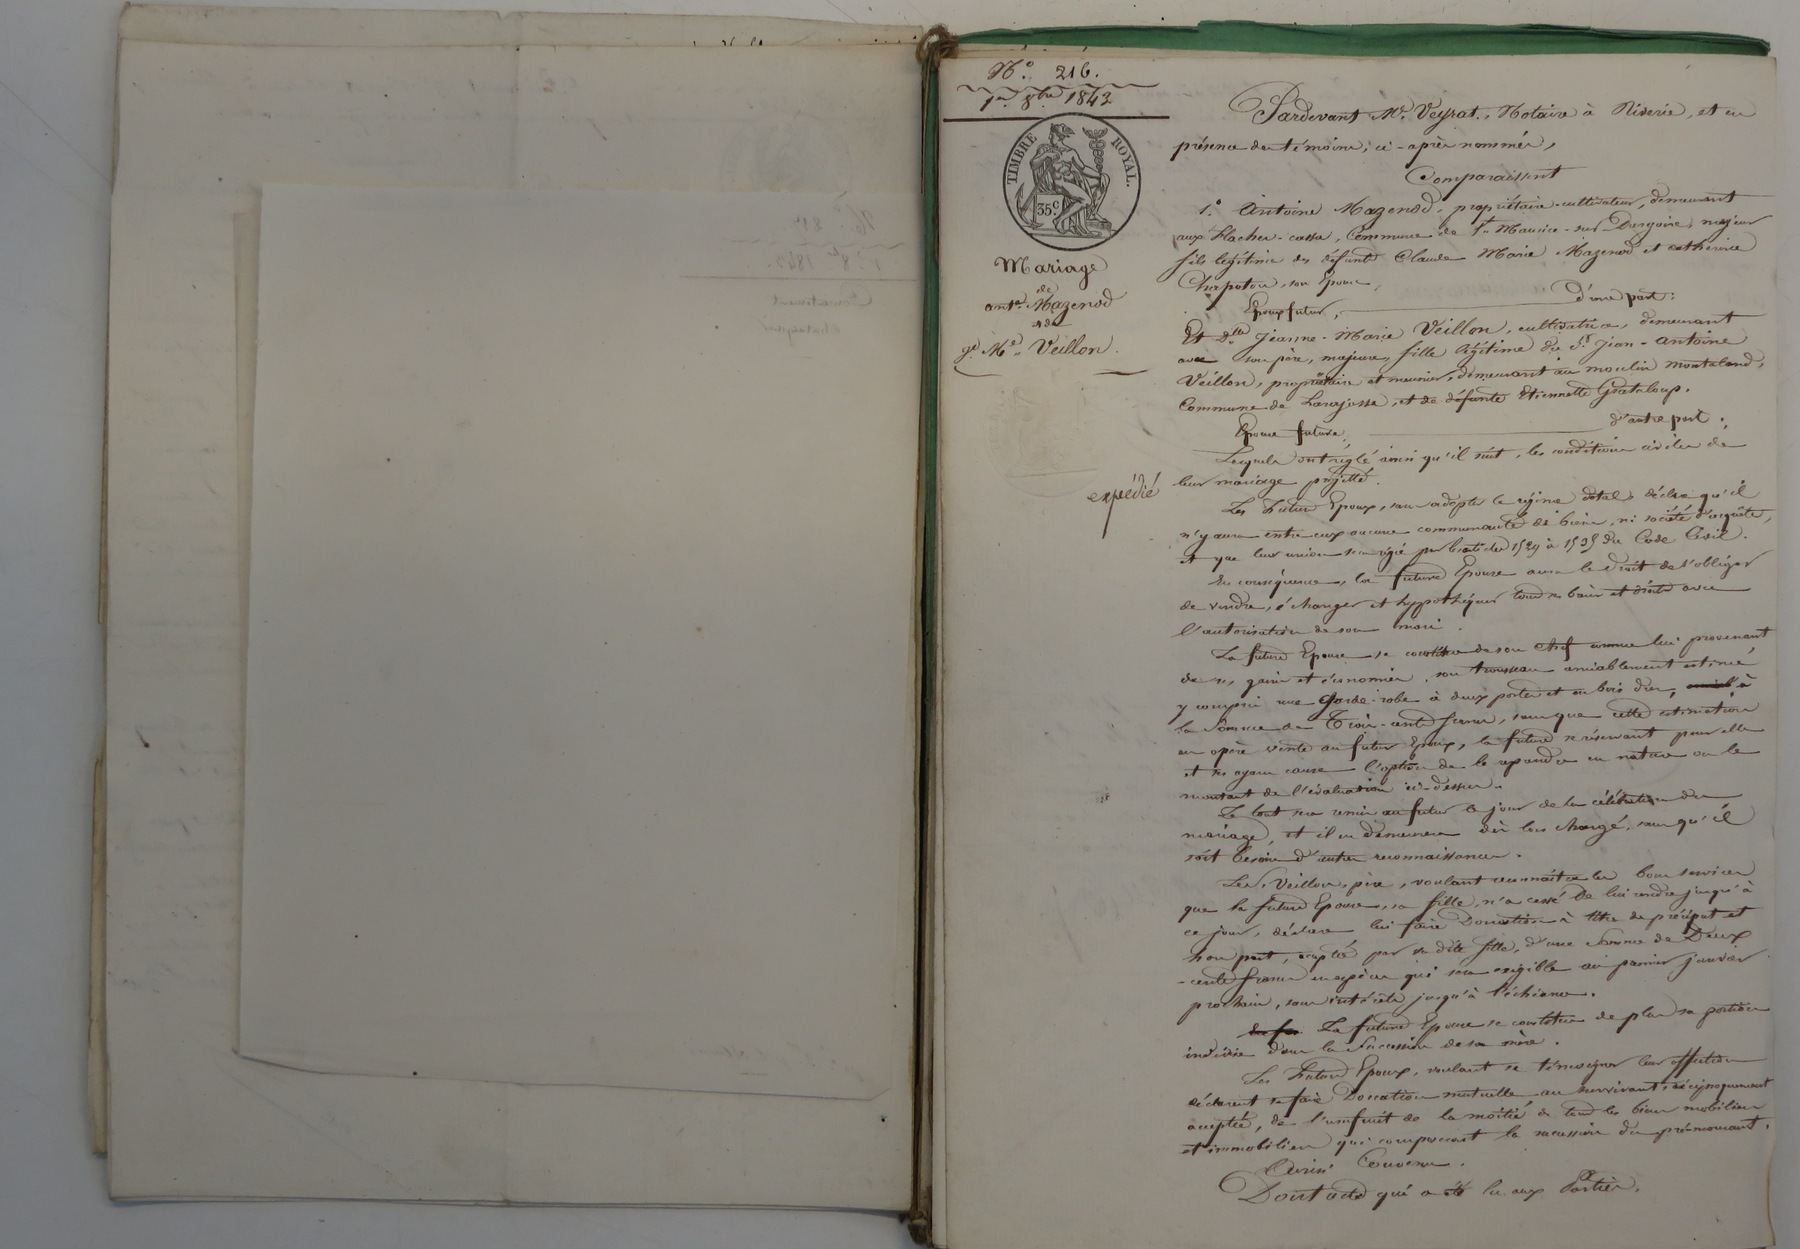 N.° 216.
1er 8bre 1843
TIMBRE ROYAL.
35.c
Mariage
de
ant.e Mazenod
et de
J.e M.e Veillon.
expédié
Pardevant M.e Veyrat, Notaire à Riverie, et en
présence des témoins, ci-après nommés,
Comparaissent
1.° Antoine Mazenod, propriétaire-cultivateur, demeurant
aux Flaches-, Commune de St. Maurice-sur-Dargoire, majeur
fils légitime des défunts Claude Marie Mazenod et Catherine
Chapoton, son Epouse,
Epoux futur, d'une part:
Et D.lle Jeanne-Marie Veillon, cultivatrice, demeurant
avec son père, majeure, fille légitime du S.r Jean-Antoine
Veillon, propriétaire et meunier, demeurant au moulin Montaland,
Commune de Larajasse, et de défunte Etiennette Grataloup.
Epouse future, d'autre part.
Lesquels ont réglé ainsi qu'il suit, les conditions civiles de
leur mariage projetté.
Les Futurs Epoux, sans adopter le régime dotal, déclare qu'il
n'y aura entre eux aucune communauté de biens, ni société d'acquêts,
et que leur union sera régie par les articles 1529 à 1535 du Code Civil.
En conséquence, la future Epouse aura le droit de s'obliger
de vendre, échanger et hypothéquer tous ses biens et droits avec
l'autorisation de son mari.
La future Epouse se constitue de son chef comme lui provenant
de ses gains et économies, son trousseau amiablement estimé
y compris une garde-robe à deux portes et en bois dur, à
la Somme de Trois-cents francs, sans que cette estimation
en opère vente au futur Epoux, la future se réservant pour elle
et ses ayans cause l'option de le reprendre en nature ou le
montant de l'évaluation ci-dessus.
Le tout sera remis au futur le jour de la célébration du
mariage, et il en demeurera dès lors chargé, sans qu'il
soit besoin d'autre reconnaissance.
Le S.r Veillon, père, voulant reconnaître les bons services
que la future Epouse, sa fille, n'a cessé de lui rendre jusqu'à
ce jour, déclare lui faire Donation à titre de préciput et
hors part, accepté par sa dite fille, d'une Somme de Deux
-cents francs en espèces qui sera exigible au premier janvier
prochain, sans intérêts jusqu'à l'échéance.
La future Epouse se constitue de plus sa portion
indivise dans la Succession de sa mère.
Les Futurs Epoux, voulant se témoigner leur affection
déclarent se faire Donation mutuelle au survivant, réciproquement
acceptée, de l'usufruit de la moitié de tous les biens mobiliers
et immobiliers qui composeront la succession du prémourant.
Ainsi Convenu.
Dont acte qui a été lu aux Parties.